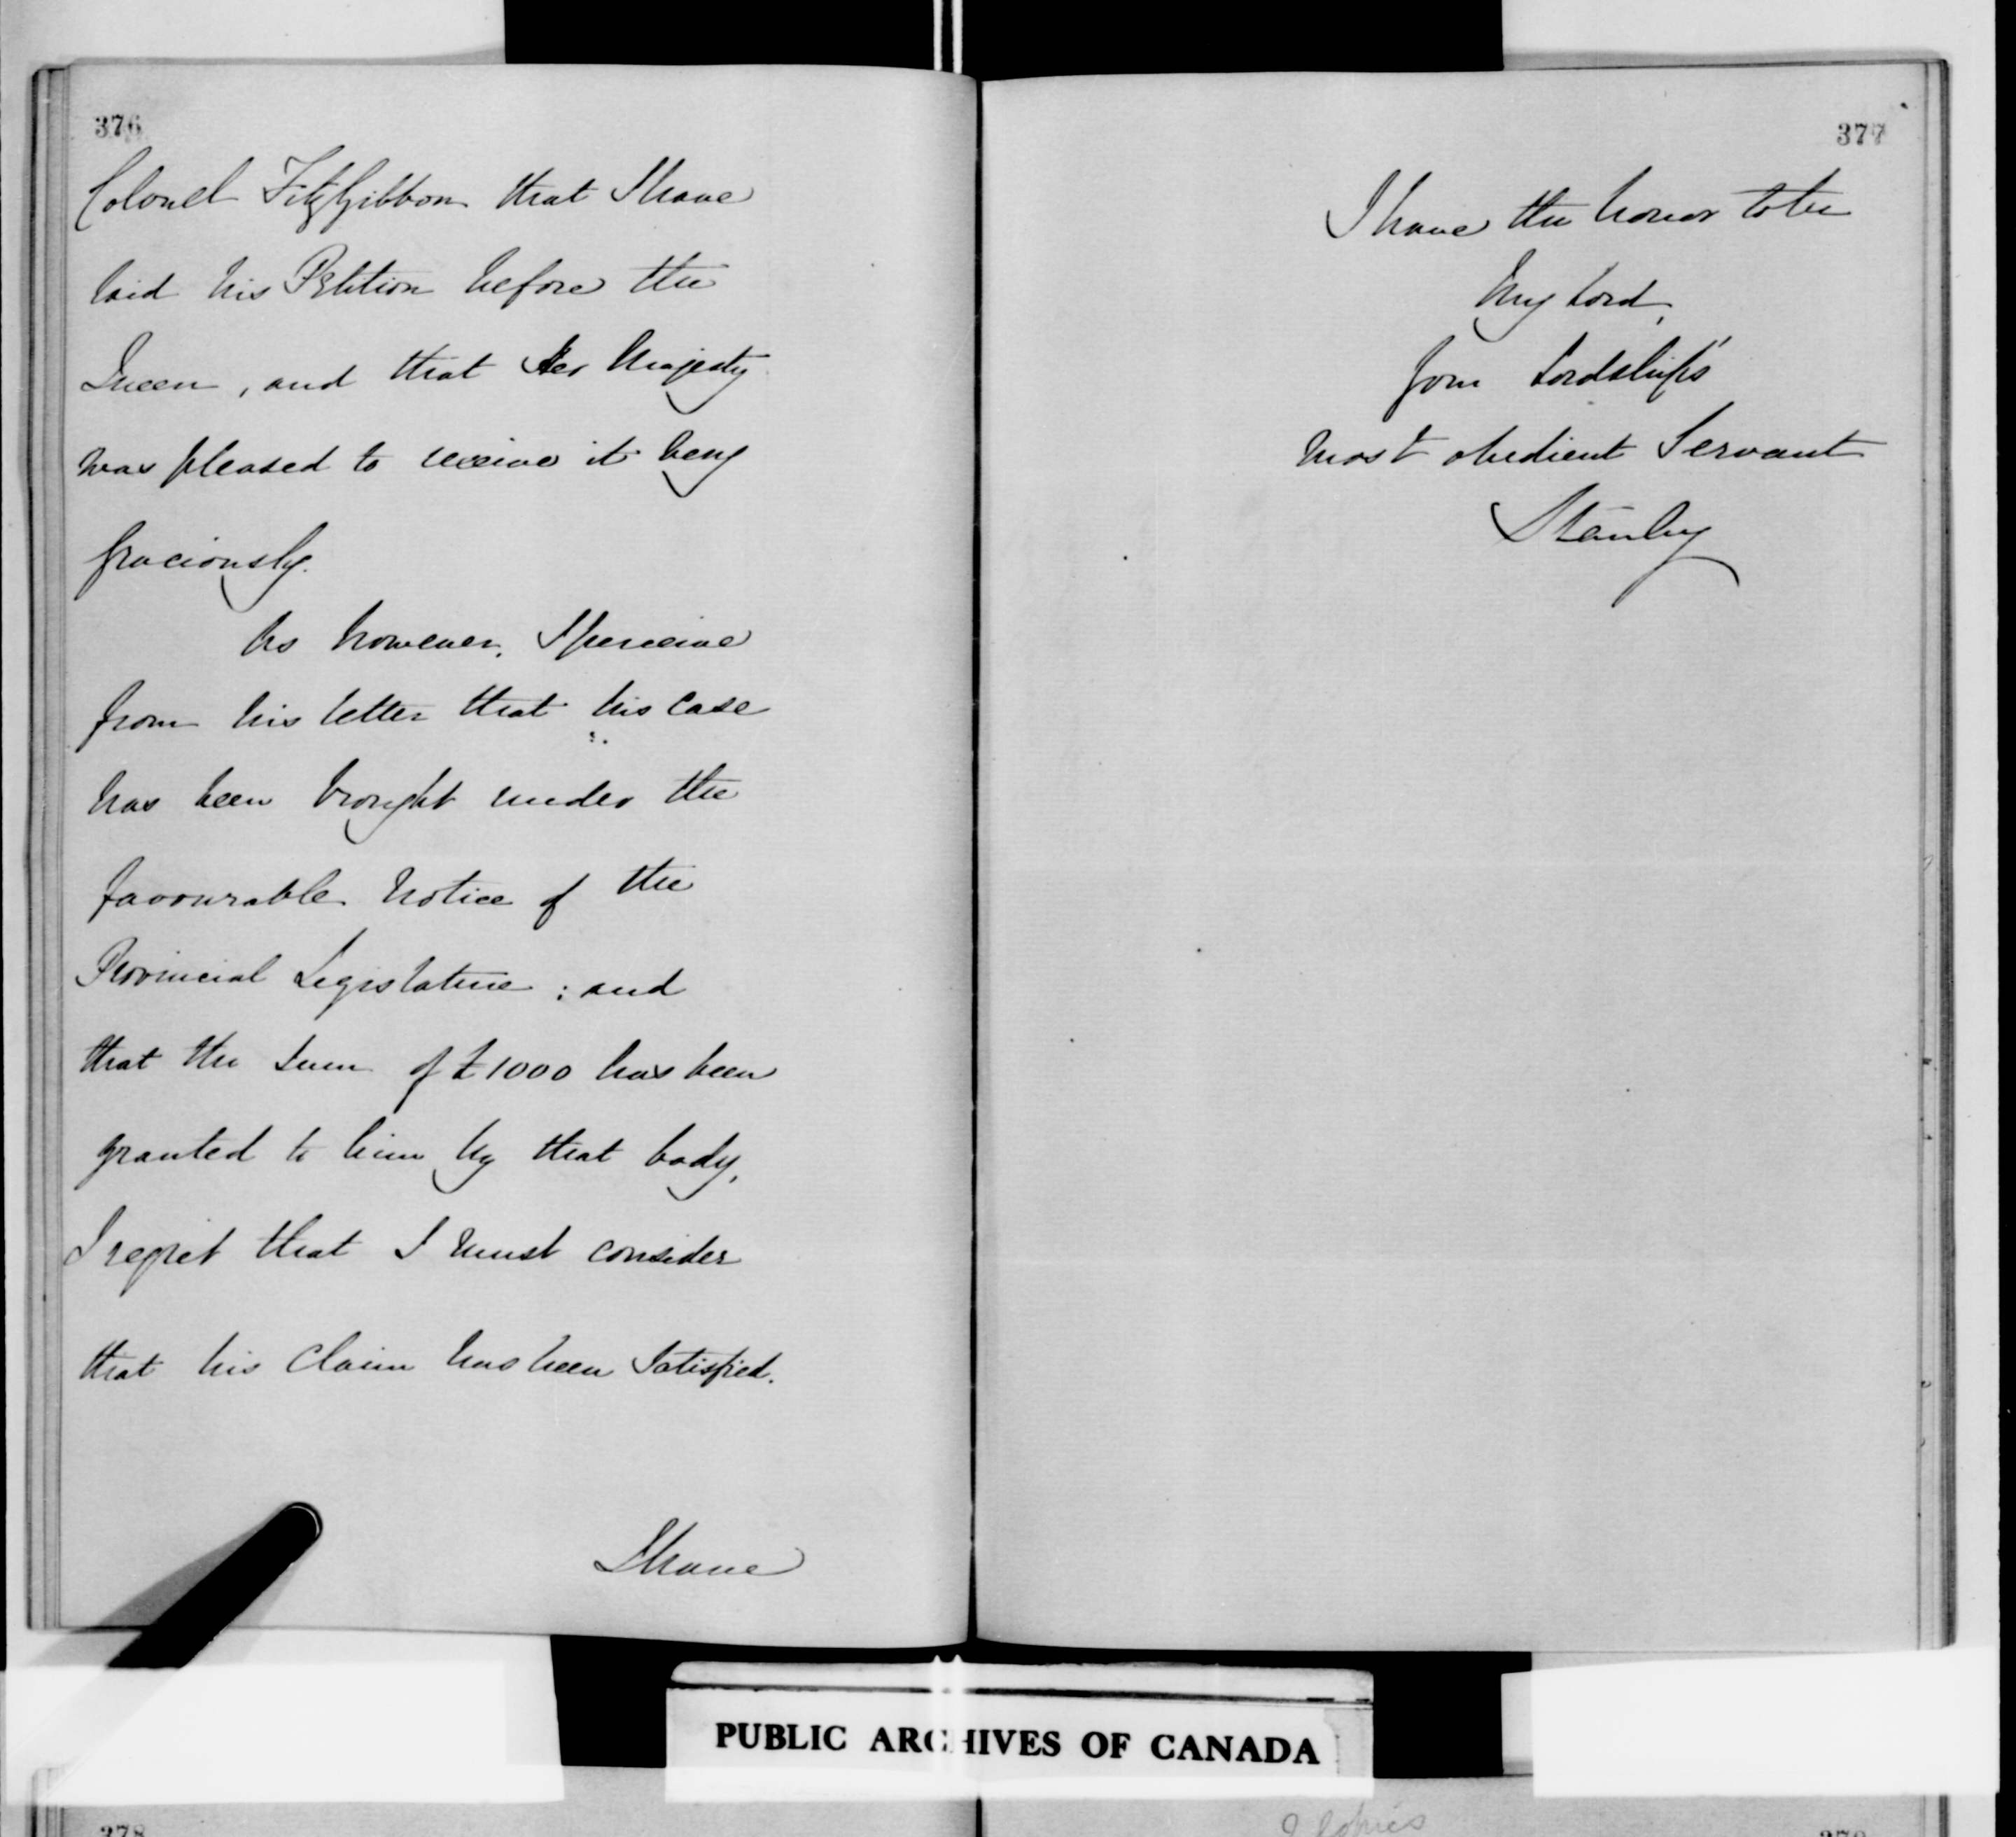 376
Colonel FitzGibbon that I have
laid his Petition before the
Queen, and that Her Majesty
was pleased to receive it very
graciously.
As however, I perceive
from his letter that his case
has been brought under the
favourable notice of the
Provincial Legislature; and
that the sum of £1000 has been
granted to him by that body,
I regret that I must consider
that his claim has been satisfied.
I have
377
I have the honor to be
My Lord,
Your Lordship's
most obedient Servant
Stanley
PUBLIC ARCHIVES OF CANADA
378